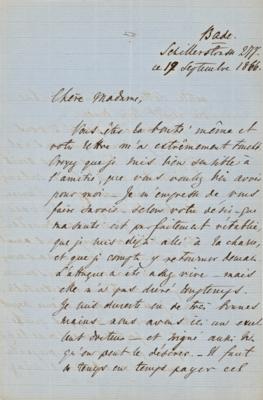 Bade.
Schillerstrasse 277.
ce 19 Septembre 1864.
Chère Madame,
Vous êtes la bonté même et
votre lettre m'a extrêmement touché.
Croyez que je suis bien sensible à
l'amitié que vous voulez bien avoir
pour moi. – Je m'empresse de vous
faire savoir – selon votre désir – que
ma santé est parfaitement rétablie,
que je suis déjà allé à la chasse,
et que je compte y retourner demain.
L'attaque a été assez vive – mais
elle n'a pas duré longtemps.
Je suis d'ailleurs en de très bonnes
mains – nous avons ici un excel-
lent docteur – et soigné aussi bien
qu'on peut le désirer. – Il faut
de temps en temps payer cet